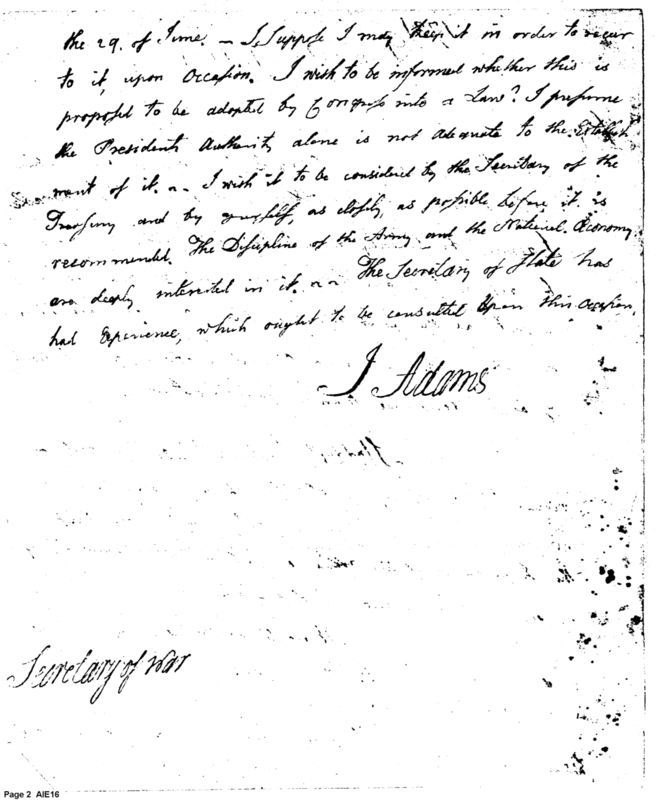 the 29. of June. — I Suppose I may keep it in order to recur
to it, upon Occasion. I wish to be informed whether this is
proposed to be adopted by Congress into a Law? I presume
the Presidents Authority alone is not adequate to the Establish
ment of it. I wish it to be considered by the Secretary of the
Treasury and by yourself, as closely, as possible before it is
recommended. The Discipline of the Army and the National Œconomy
are deeply interested in it. The Secretary of State has
had Experience, which ought to be consulted Upon this Occasion.
J Adams
Secretary of War
Page 2 AIE16